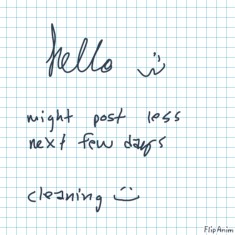 hello :)
might post less
next few days
cleaning :)
FlipAnim